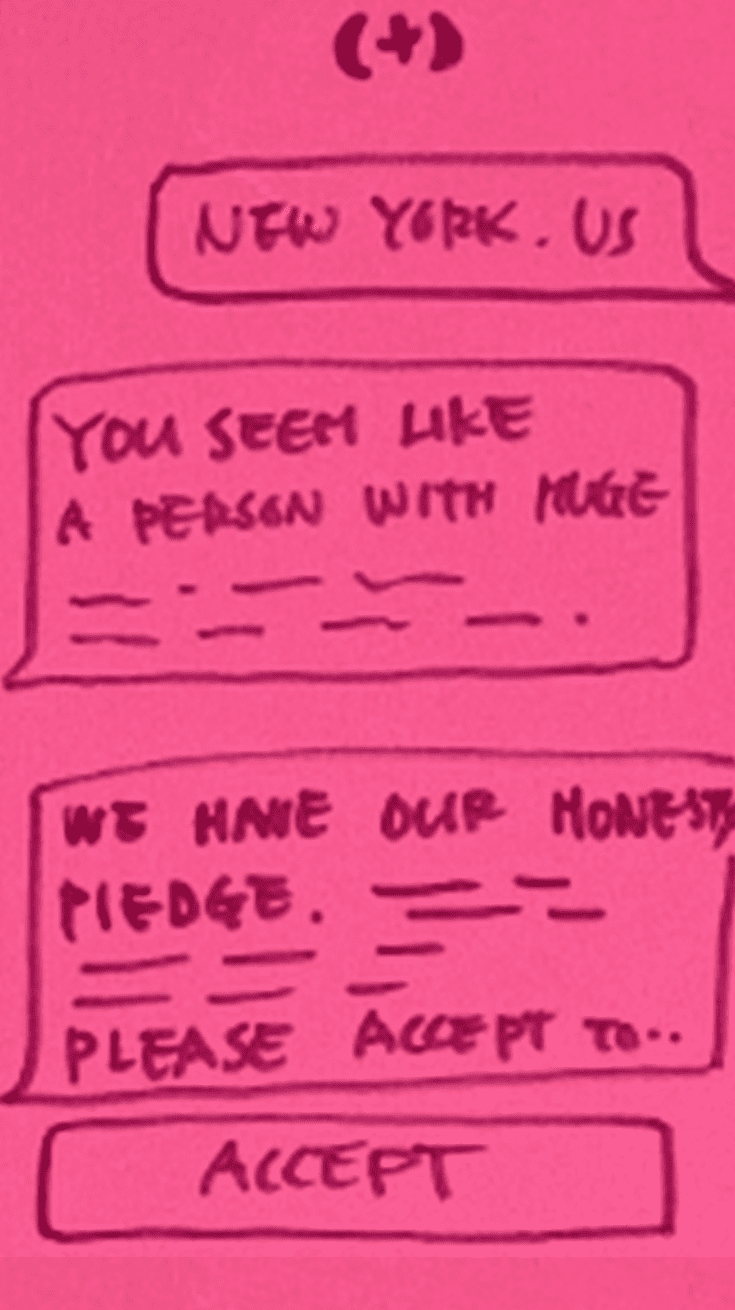 (+)
NEW YORK. US
YOU SEEM LIKE
A PERSON WITH HUGE
WE HAVE OUR HONESTY
PLEDGE.
PLEASE ACCEPT TO..
ACCEPT